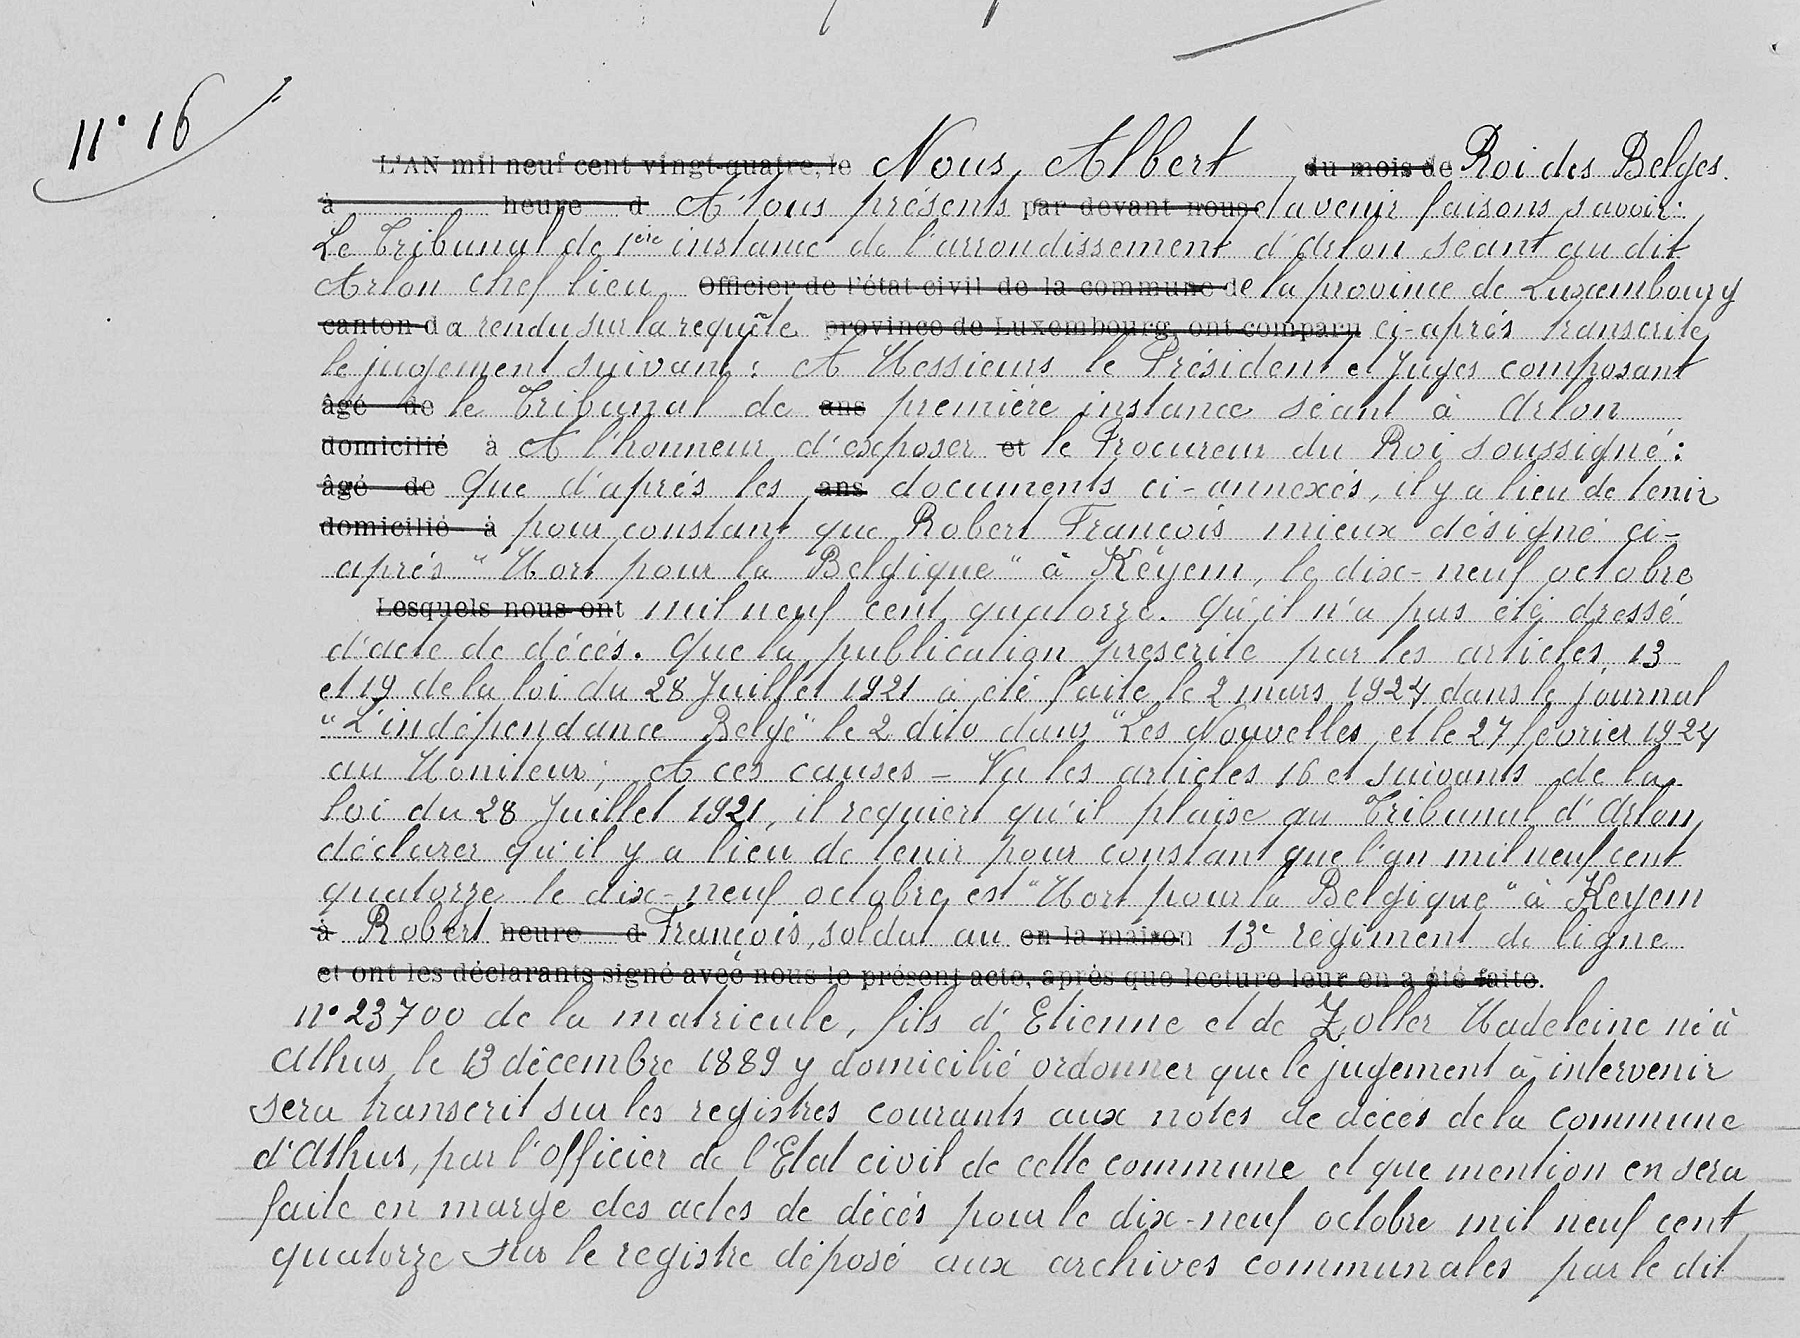 N° 16
L'AN mil neuf cent vingt-quatre, le Nous, Albert du mois de Roi des Belges.
à heure d A tous présents par devant nous et avenir faisons savoir:
Le Tribunal de 1ère instance de l'arrondissement d'Arlon séant au dit
Arlon chef lieu Officier de l'état civil de la commune de la province de Luxembourg
canton d a rendu sur la requête province de Luxembourg, ont comparu ci-après transcrite
le jugement suivant: A Messieurs le Président et Juges composant
âgé de le Tribunal de ans première instance séant à Arlon
domicilié à A l'honneur d'exposer et le Procureur du Roi soussigné:
âgé de Que d'après les ans documents ci-annexés, il y a lieu de tenir
domicilié à pour constant que Robert François mieux désigné ci-
après "Mort pour la Belgique" à Kéyem, le dix-neuf octobre
Lesquels nous ont mil neuf cent quatorze. Qu'il n'a pas été dressé
d'acte de décès. Que la publication prescrite par les articles 13
et 19 de la loi du 28 Juillet 1921 a été faite le 2 mars 1924 dans le journal
"L'indépendance Belge" le 2 dito dans "Les Nouvelles, et le 27 février 1924
au Moniteur; A ces causes - Vu les articles 16 et suivants de la
loi du 28 Juillet 1921, il requiert qu'il plaise au Tribunal d'Arlon
déclarer qu'il y a lieu de tenir pour constant que l'an mil neuf cent
quatorze le dix-neuf octobre est "Mort pour la Belgique" à Keyem
à Robert heure d François, soldat au en la maison 13e régiment de ligne
et ont les déclarants signé avec nous le présent acte, après que lecture leur en a été faite.
n° 23700 de la matricule, fils d'Etienne et de Zoller Madeleine né à
Athus, le 13 décembre 1889 y domicilié ordonner que le jugement à intervenir
sera transcrit sur les registres courants aux notes de décès de la commune
d'Athus, par l'officier de l'Etat civil de cette commune et que mention en sera
faite en marge des actes de décès pour le dix-neuf octobre mil neuf cent
quatorze sur le registre déposé aux archives communales par le dit